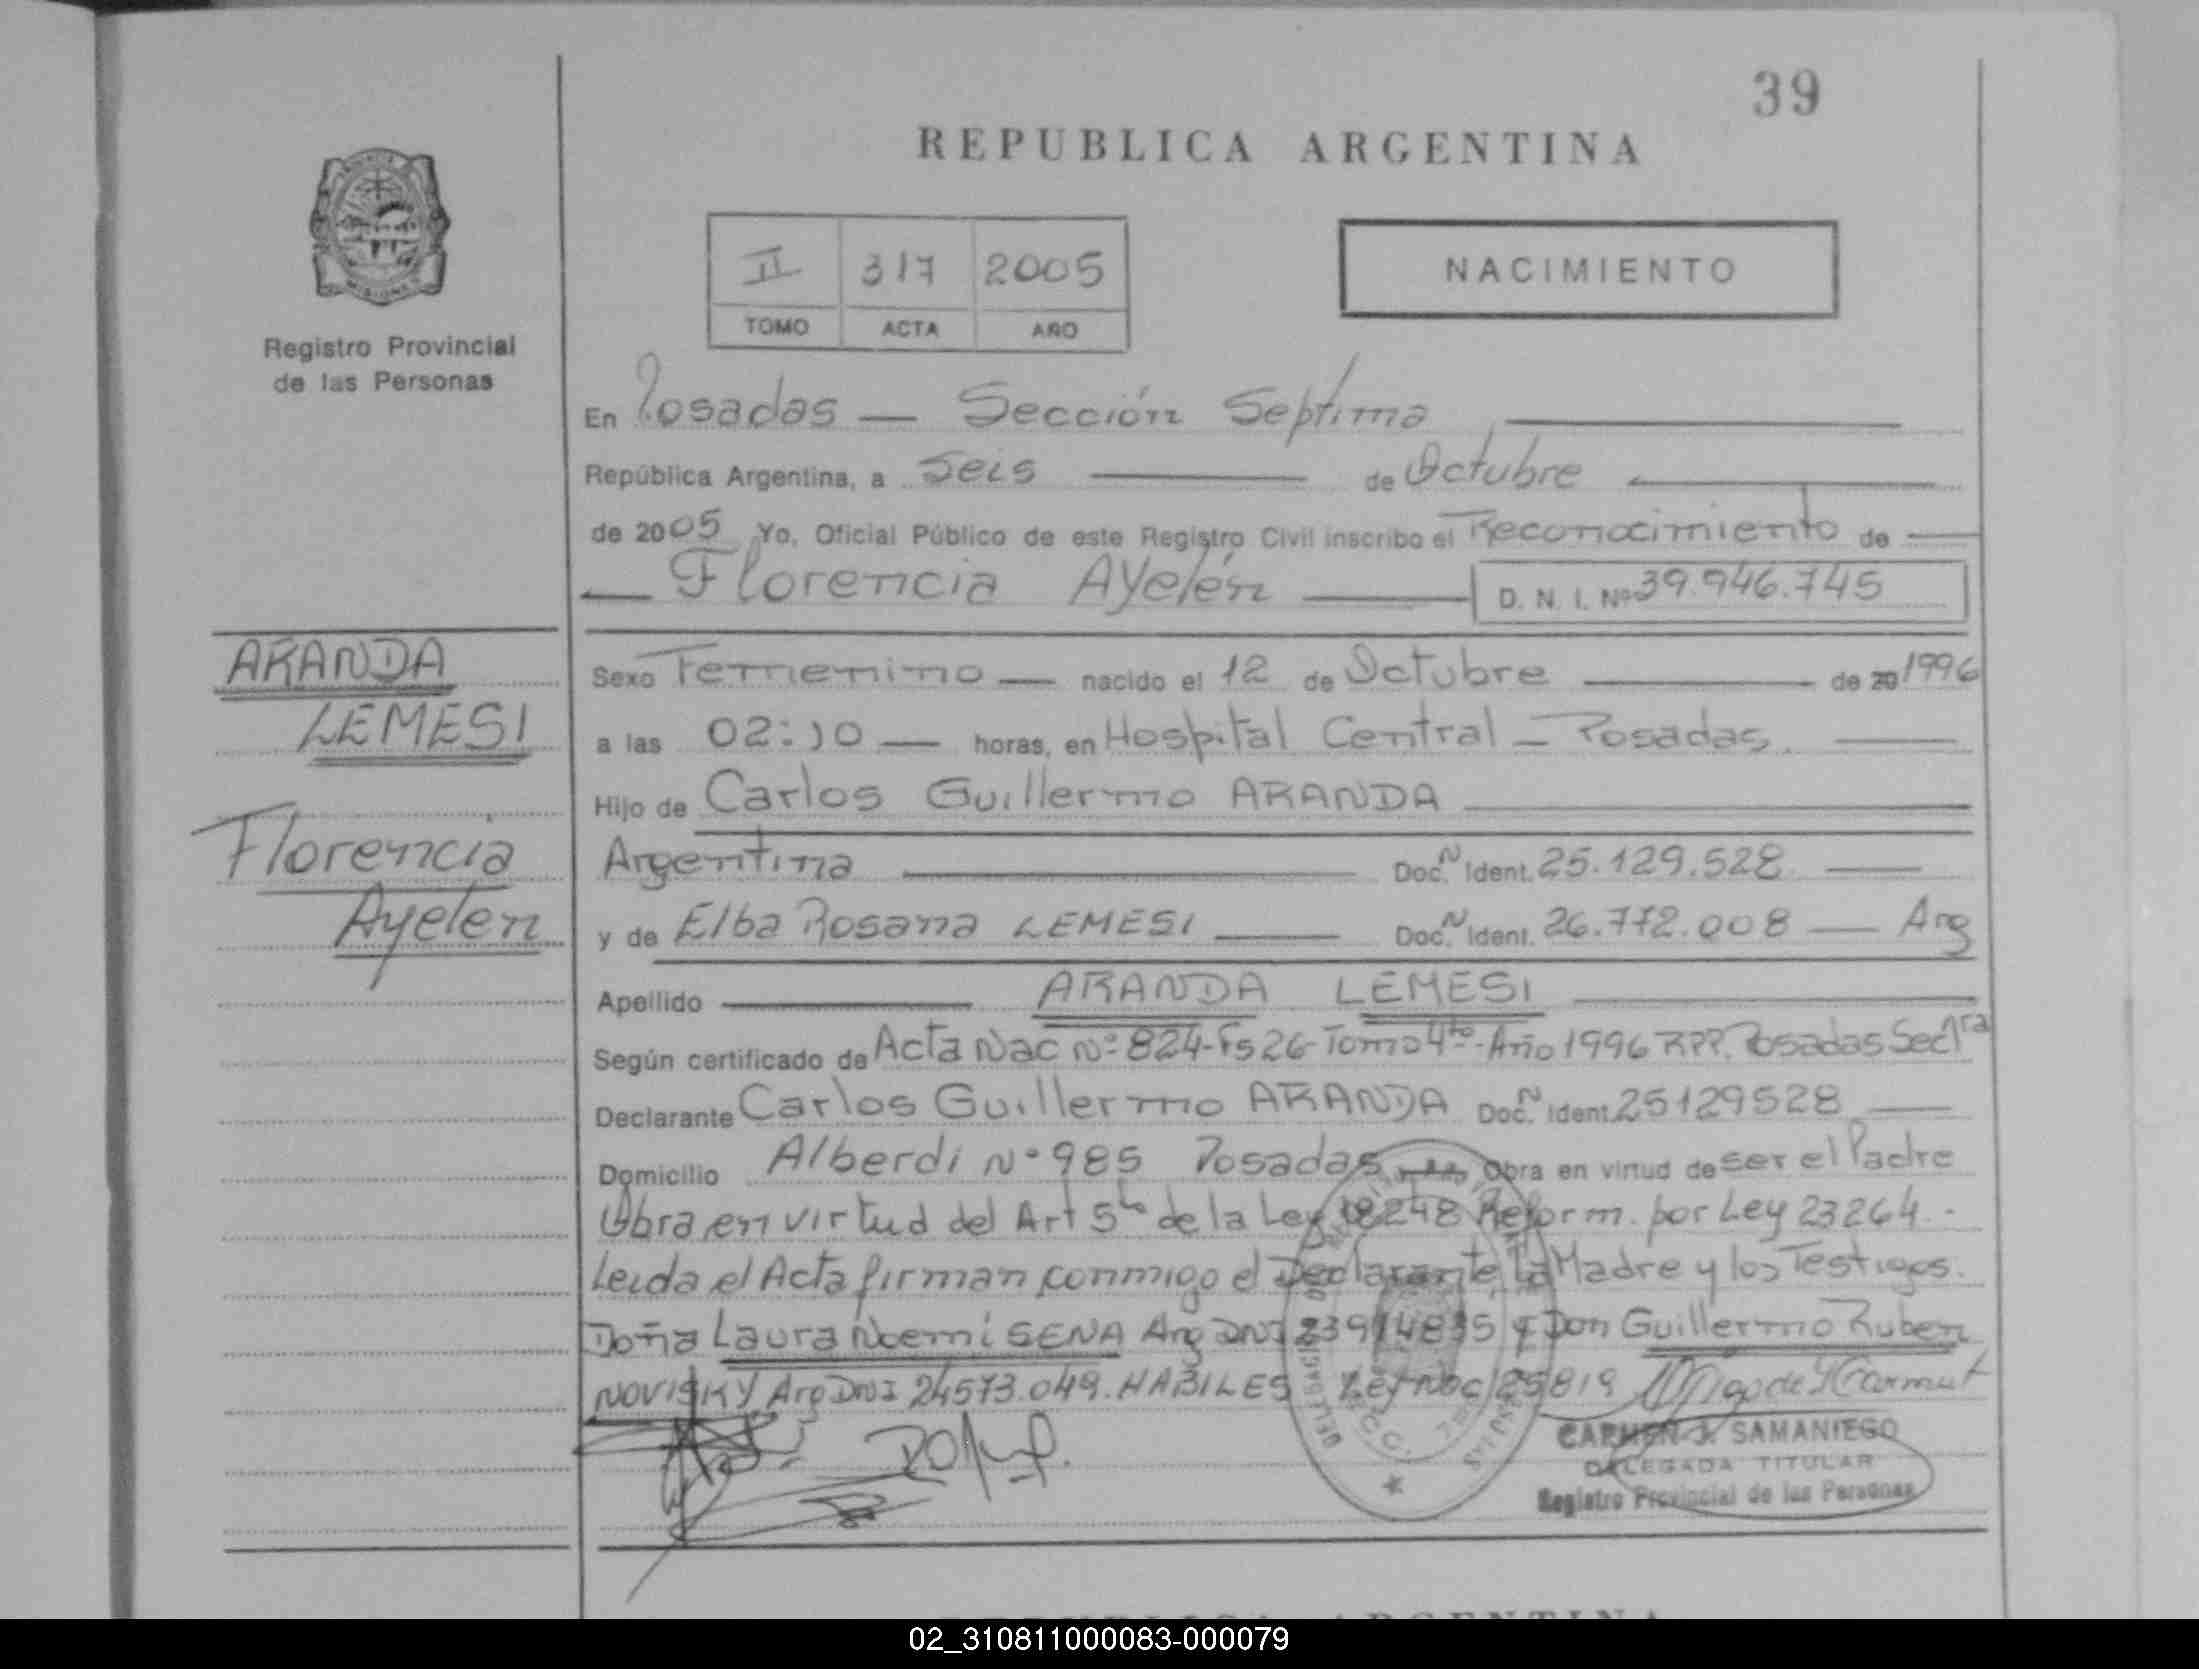 39
REPUBLICA ARGENTINA
II 317 2005
TOMO ACTA AÑO
NACIMIENTO
Registro Provincial
de las Personas
En Posadas — Sección Septima
República Argentina, a Seis de Octubre
de 2005 Yo, Oficial Público de este Registro Civil inscribo el Reconocimiento de
Florencia Ayelén D. N. I. Nº 39.946.745
ARANDA
LEMESI
Florencia
Ayelen
Sexo Femenino — nacido el 12 de Octubre de 20 1996
a las 02:10 — horas, en Hospital Central – Posadas.
Hijo de Carlos Guillermo ARANDA
Argentina Doc. N Ident. 25.129.528
y de Elba Rosana LEMESI Doc. N Ident. 26.772.008 — Arg
Apellido ARANDA LEMESI
Según certificado de Acta Nac Nº 824-Fs 26-Tomo 4to-Año 1996 RPP. Posadas Sec 1ra
Declarante Carlos Guillermo ARANDA Doc. N Ident. 25129528
Domicilio Alberdi Nº 985 Posadas Obra en virtud de ser el Padre
Obra en virtud del Art 5to de la Ley 18248 Reform. por Ley 23264.-
Leida el Acta firman conmigo el Declarante, la Madre y los Testigos.
Doña Laura Noemi SENA Arg DNI y Don Guillermo Ruben
NOVISKY Arg DNI 24573.049. HABILES Ley Nac 25819
CARMEN J. SAMANIEGO
DELEGADA TITULAR
Registro Provincial de las Personas
REPUBLICA ARGENTINA
02_310811000083-000079